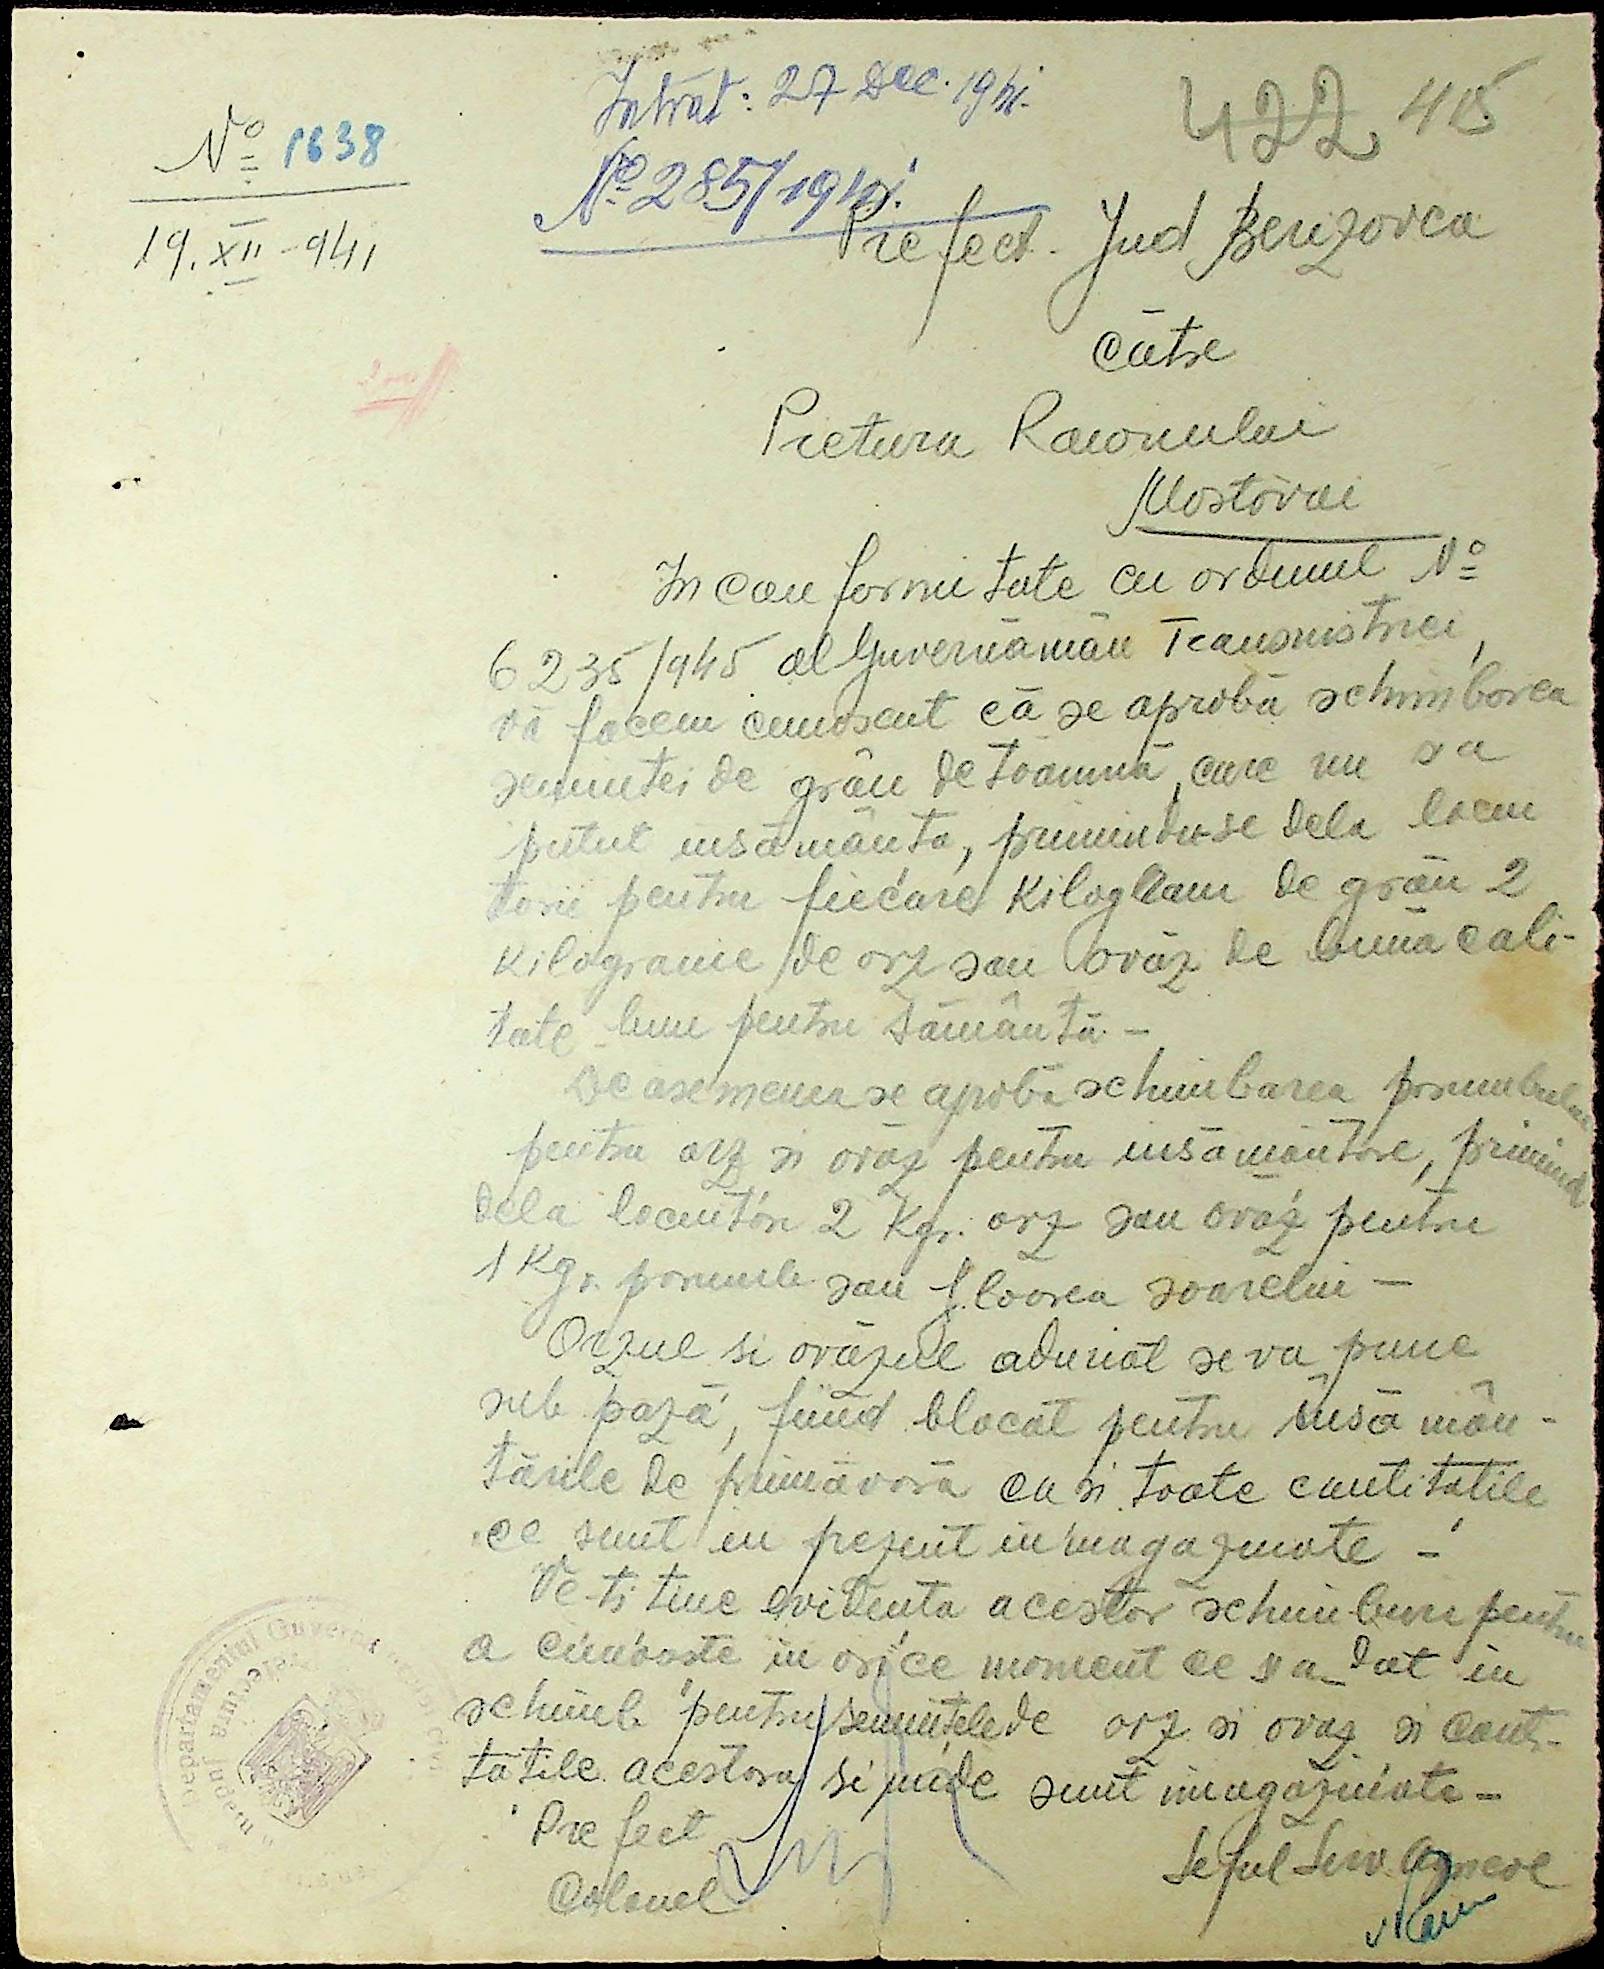 Intrat: 27 Dec. 1941.
422 415
Nº 1638
Nº 285/1941.
19. XII - 941
Prefect. Jud Berezovca
Către
Pretura Raionului
Mostovoi
In conformitate cu ordinul Nº
6235/945 al Guvernămân Transnistriei,
vă facem cunoscut că se aprobă schimbarea
semintei de grâu de toamnă, care nu sa
putut insământa, primindu-se dela locui
torii pentru fiecare Kilogram de grâu 2
Kilograme de orz sau ovăz de bună cali-
tate bun pentru sământă -
De asemenea se aprobă schimbarea porumbului
pentru orz si ovăz pentru insământare, primind
dela locuitori 2 Kgr. orz sau ovăz pentru
1 Kgr. porumb sau floarea soarelui -
Orzul si ovăzul adunat se va pune
sub pază, fiind blocat pentru însămân-
tările de primăvară ca si toate cantitătile
ce sunt in prezent inmagazinate -
Ve-ti tine evidenta acestor schimburi pentru
a cunoaste in orice moment ce sa dat in
schimb pentru semintele de orz si ovăz si canti-
tătile acestora si unde sunt inmagazinate -
Prefect
Colonel
Seful Serv. Agricol
Departamentul Guvern